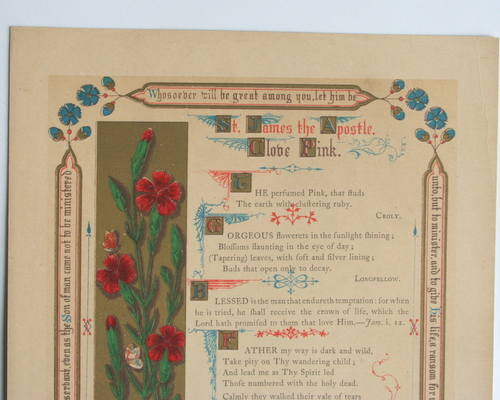 Whosoever will be great among you, let him be
St. James the Apostle.
Clove Pink.
THE perfumed Pink, that studs
The earth with clustering ruby.
CROLY.
GORGEOUS flowerets in the sunlight shining;
Blossoms flaunting in the eye of day;
(Tapering) leaves, with soft and silver lining;
Buds that open only to decay.
LONGFELLOW.
BLESSED is the man that endureth temptation: for when
he is tried, he shall receive the crown of life, which the
Lord hath promised to them that love Him.—Jam. i. 12.
FATHER my way is dark and wild,
Take pity on Thy wandering child;
And lead me as Thy Spirit led
Those numbered with the holy dead.
Calmly they walked their vale of tears
servant, even as the Son of man came not to be ministered
unto, but to minister, and to give His life, a ransom for